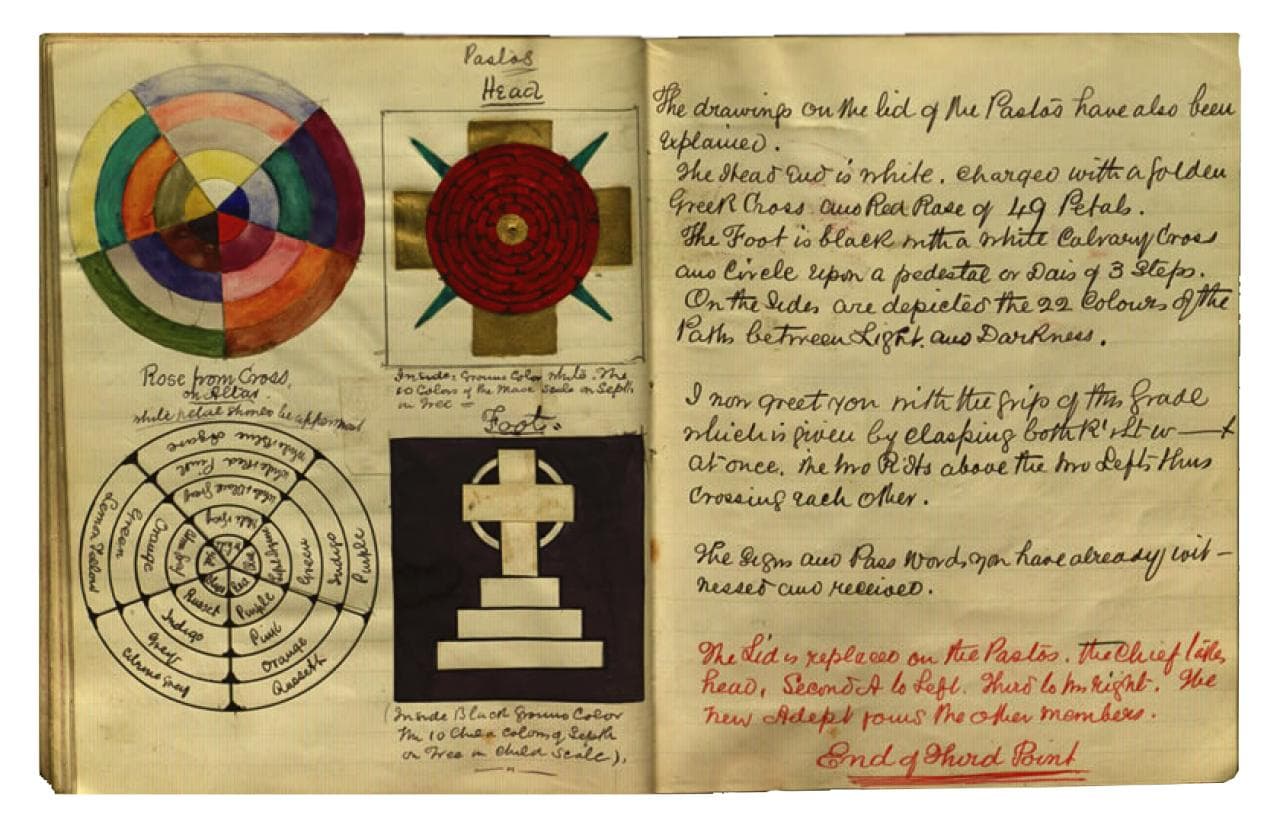 Pastos
Head
Rose from Cross,
on Altar.
white petal should be uppermost
Inside: Ground Color white. The
10 Colors of the Scale on Seph
in Tree =
Foot.
White Blue Azure
White Red Pink
White Black Gray
Lemon Yellow
Green
Orange
Purple
Indigo
Green
Russet
Purple
Indigo
Pink
Grey
Orange
Citrine Grey
Russeth
Blue
Red
(Inside Black Ground Color
The 10 colors of Seph
on Tree in Child Scale).
The drawings on the lid of the Pastos have also been
Explained.
The Head End is white. Charged with a Golden
Greek Cross and Red Rose of 49 Petals.
The Foot is black with a white Calvary Cross
and Circle upon a pedestal or Dais of 3 Steps.
On the Sides are depicted the 22 Colours of the
Paths between Light and Darkness.
I now greet you with the grip of this Grade
which is given by clasping both
at once. The two R Hs above the two Lefts thus
Crossing each other.
The Signs and Pass Words you have already wit-
nessed and received.
The Lid is replaced on the Pastos. The Chief
head, Second A to Left. Third to his right. The
new Adept joins the other members.
End of Third Point